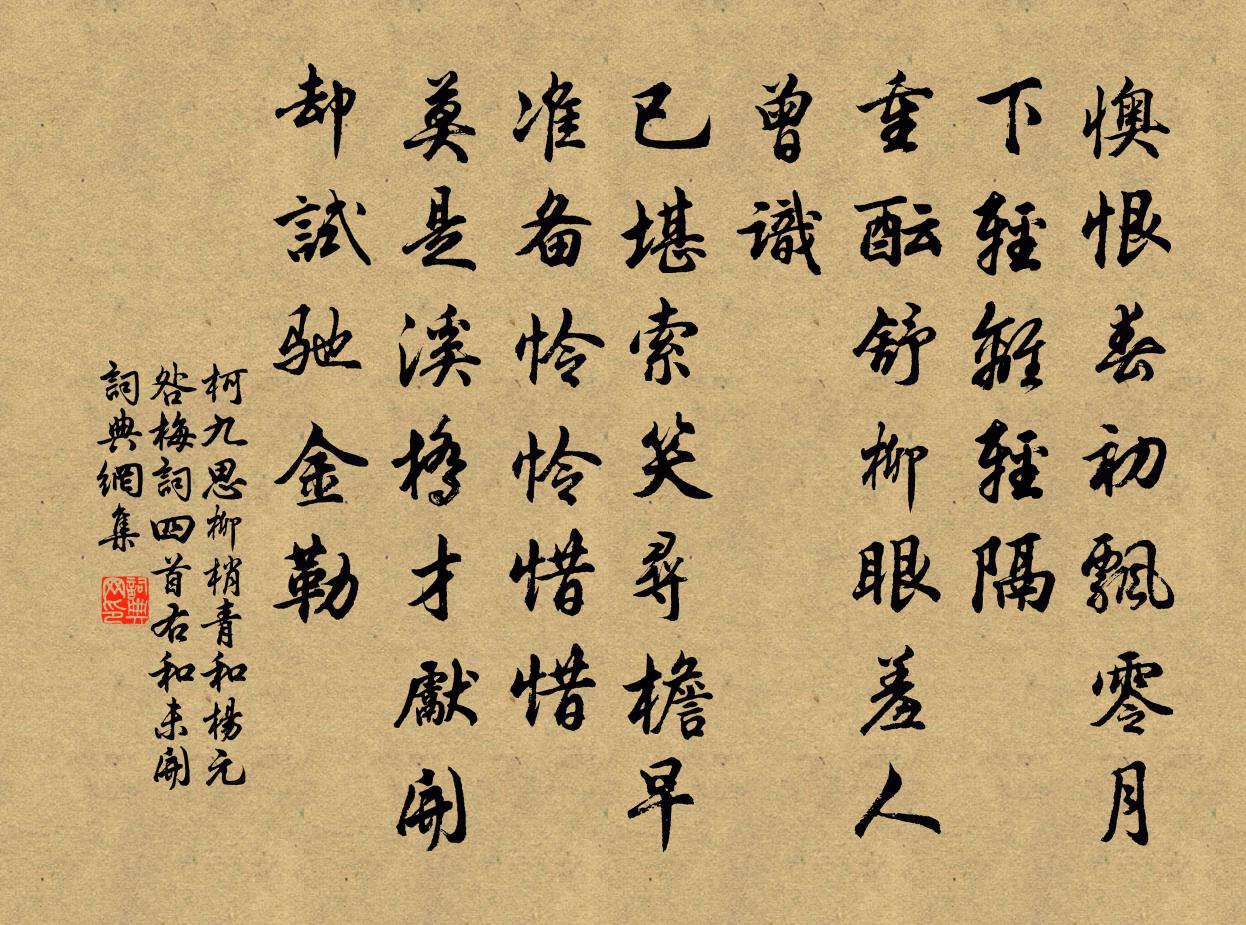 懊恨春初飄零月
下輕離輕隔
重醖舒柳眼羞人
曾識
已堪索笑尋檐早
准备怜怜惜惜
莫是溪橋才獻開
却試馳金勒
柯九思柳梢青和楊元
咎梅詞四首右和未開
詞典網集
詞典网印